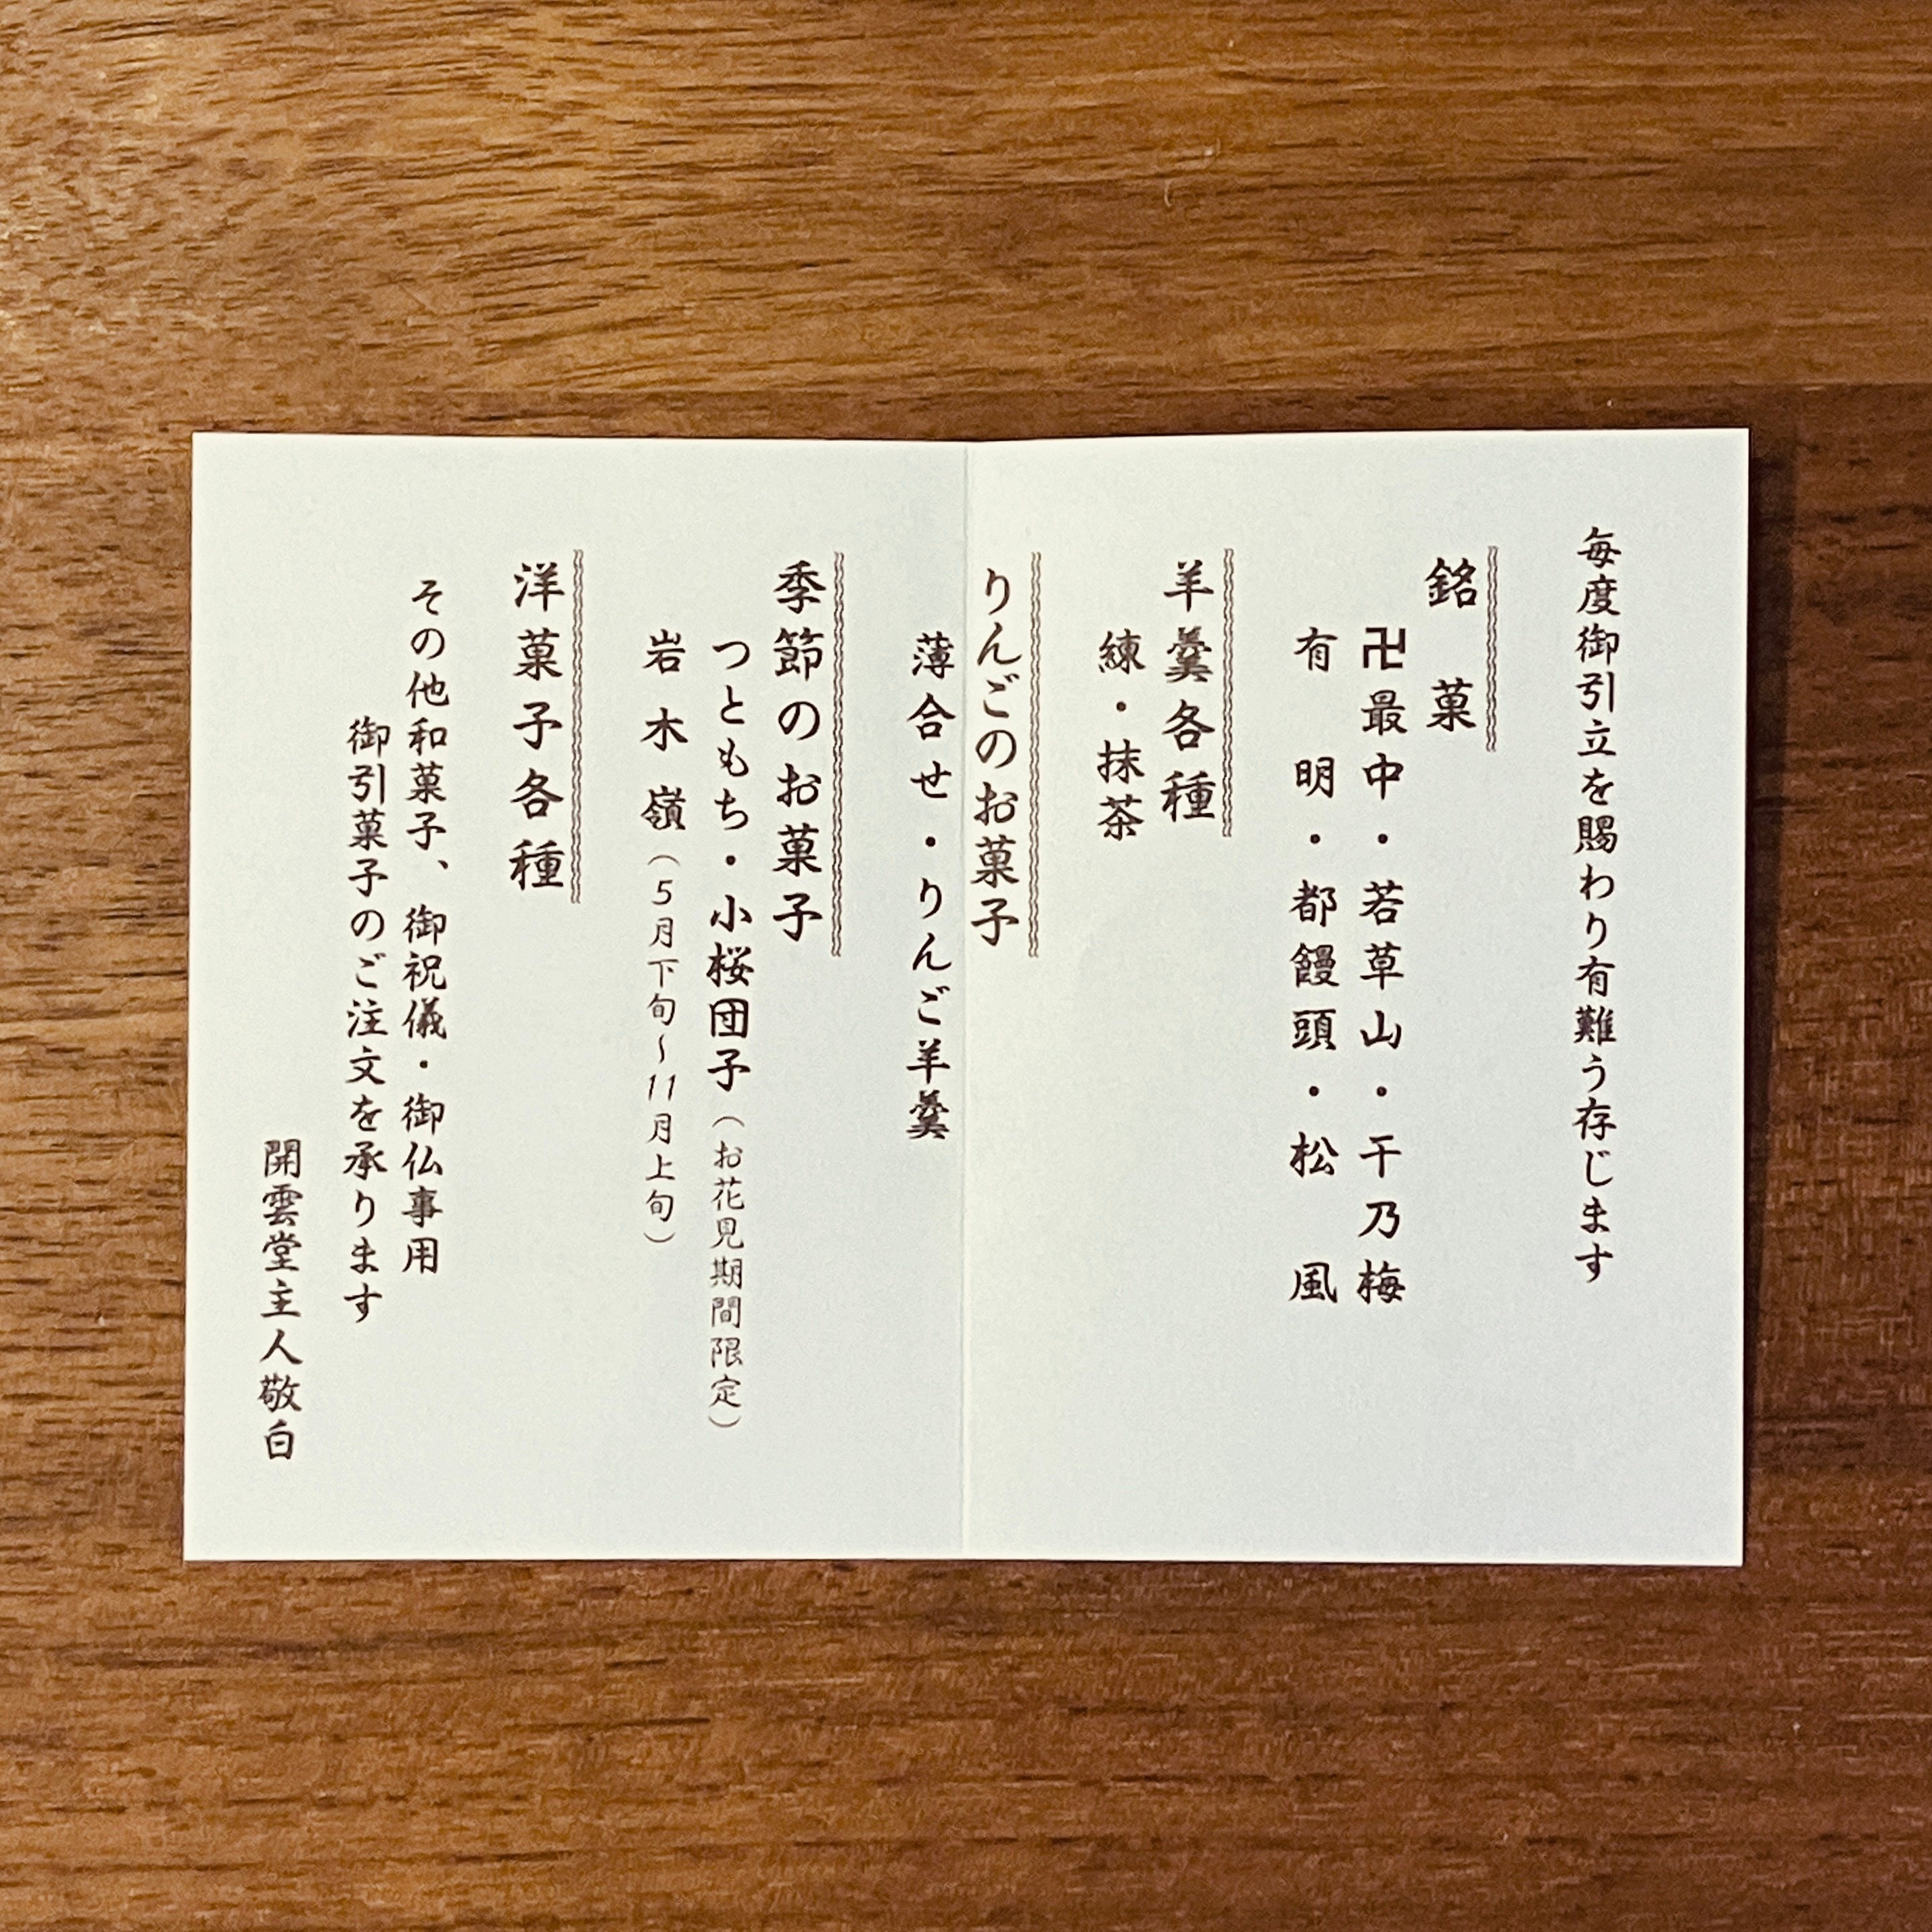 毎度御引立を賜わり有難う存じます
銘菓
卍最中・若草山・干乃梅
有明・都饅頭・松風
羊羹各種
練・抹茶
りんごのお菓子
薄合せ・りんご羊羹
季節のお菓子
つともち・小桜団子（お花見期間限定）
岩木嶺（5月下旬～11月上旬）
洋菓子各種
その他和菓子、御祝儀・御仏事用
御引菓子のご注文を承ります
開雲堂主人敬白